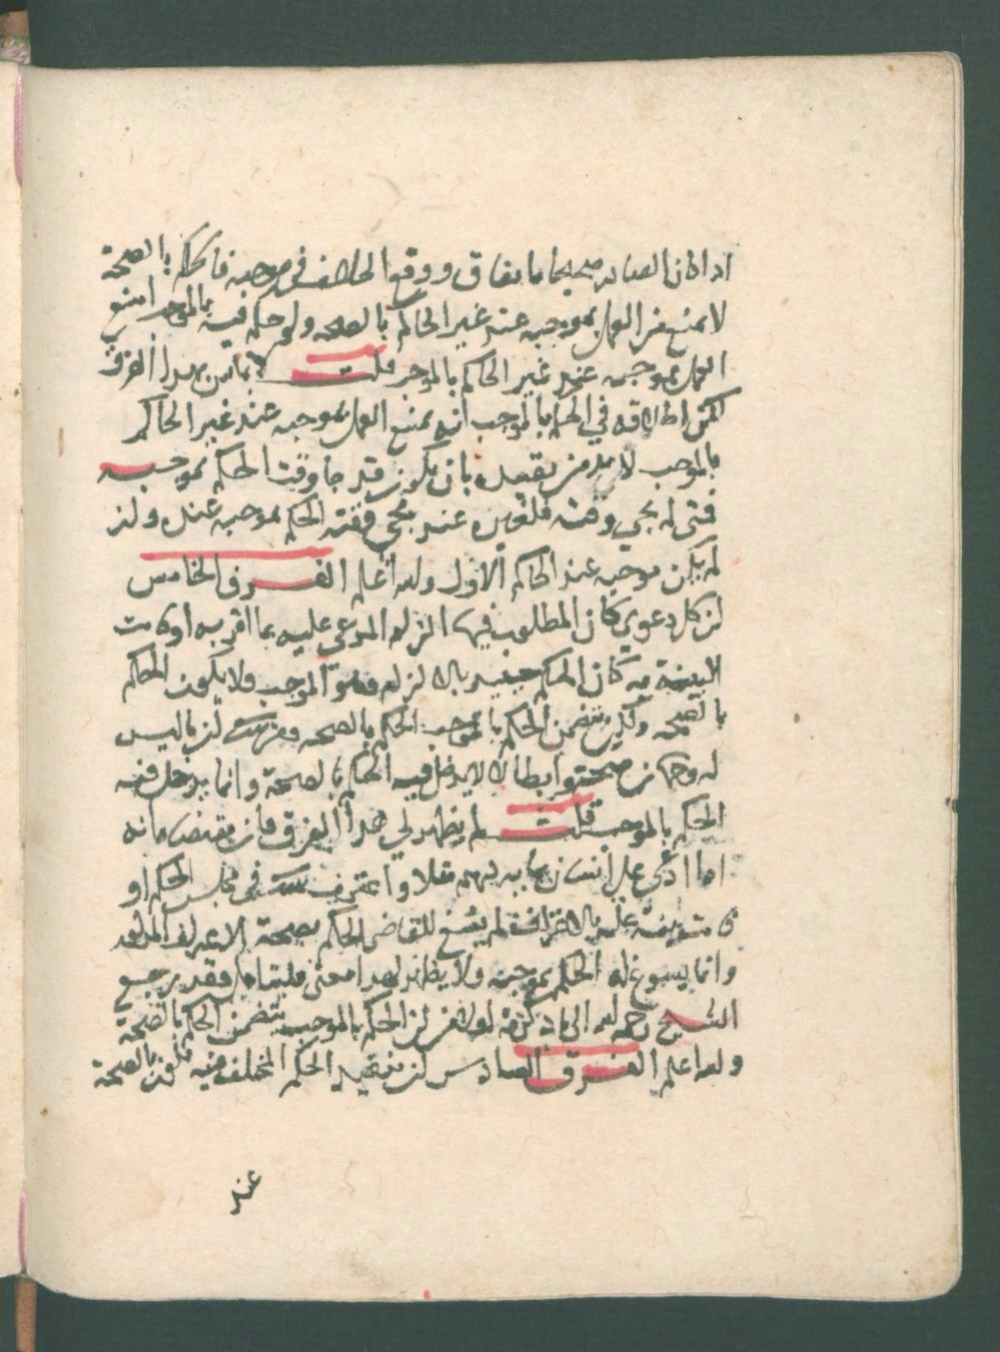 اذا كان الصادر صحيحا باتفاق ووقع الخلاف في موجبه فالحكم بالصحة
لا يمنع من العمل بموجبه عند غير الحاكم بالصحة ولو حكم فيه بالموجب امتنع
العمل بموجبه عند غير الحاكم بالموجب قلت لا باس بهذا الفرق
لكن اطلاقه في الحكم بالموجب انه يمنع العمل بموجبه عند غير الحاكم
بالموجب لا بد من تقييده بان يكون قد جا وقت الحكم بموجبه
فمتى لم يجي وقته فلغيره عند مجي وقته الحكم بموجبه عنده ولن
لم يكن موجبه عند الحاكم الاول والله اعلم الفرق الخامس
ان كل دعوى كان المطلوب فيها الزام المدعى عليه بما اقر به او قامت
البينة به كان الحكم حينيذ بالالزام وهو الموجب فلا يكون الحكم
بالصحة ولكن يتضمن الحكم بالموجب الحكم بالصحة ان ما ليس
له وجهان صحة وابطال لا يدخل فيه الحكم بالصحة وانما يدخل فيه
الحكم بالموجب قلت لم يظهر لي هذا الفرق فان مقتضاه انه
اذا ادعى على انسان بماية درهم مثلا واعترف بذلك في مجلس الحكم او
قامت بينة عليه بالاعتراف لم يسغ للقاضي الحكم بصحة الاعتراف
وانما يسوغ له الحكم بموجبه ولا يظهر لهذا معنى فليتامل وقد يرجع
الشيخ رحمه الله الى ما ذكرته لقوله ان الحكم بالموجب يتضمن الحكم بالصحة
والله اعلم الفرق السادس ان تنفيذ الحكم المختلف فيه يكون بالصحة
عند